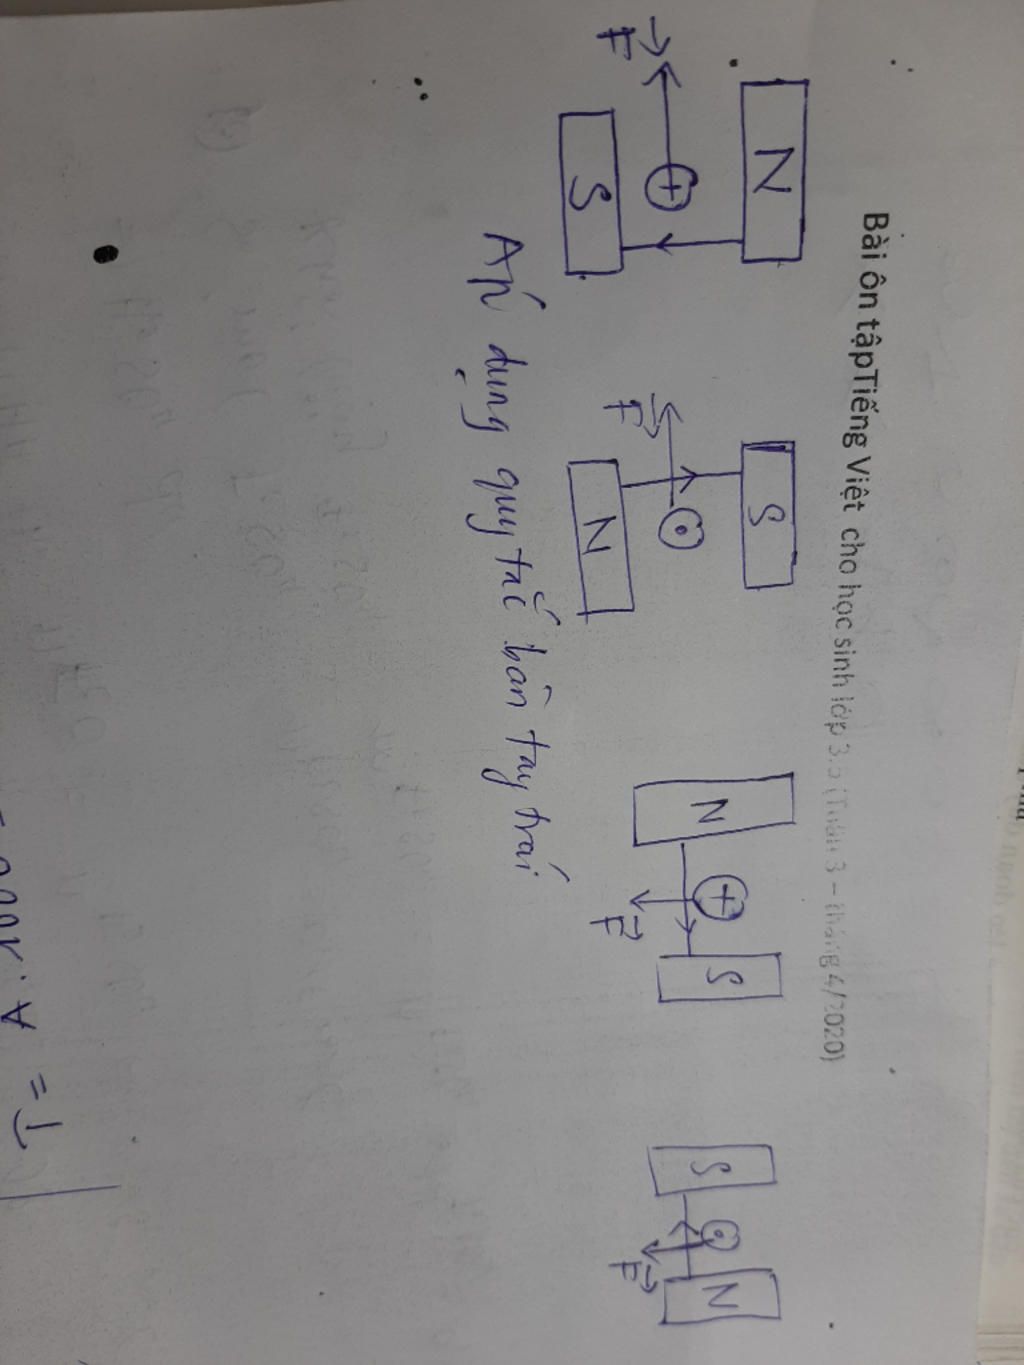 Bài ôn tậpTiếng Việt cho học sinh lớp 3.5 (Tuần 3 – tháng 4/2020)
N S N S
S N
F F F F
Áp dụng quy tắc bàn tay trái
T = A.